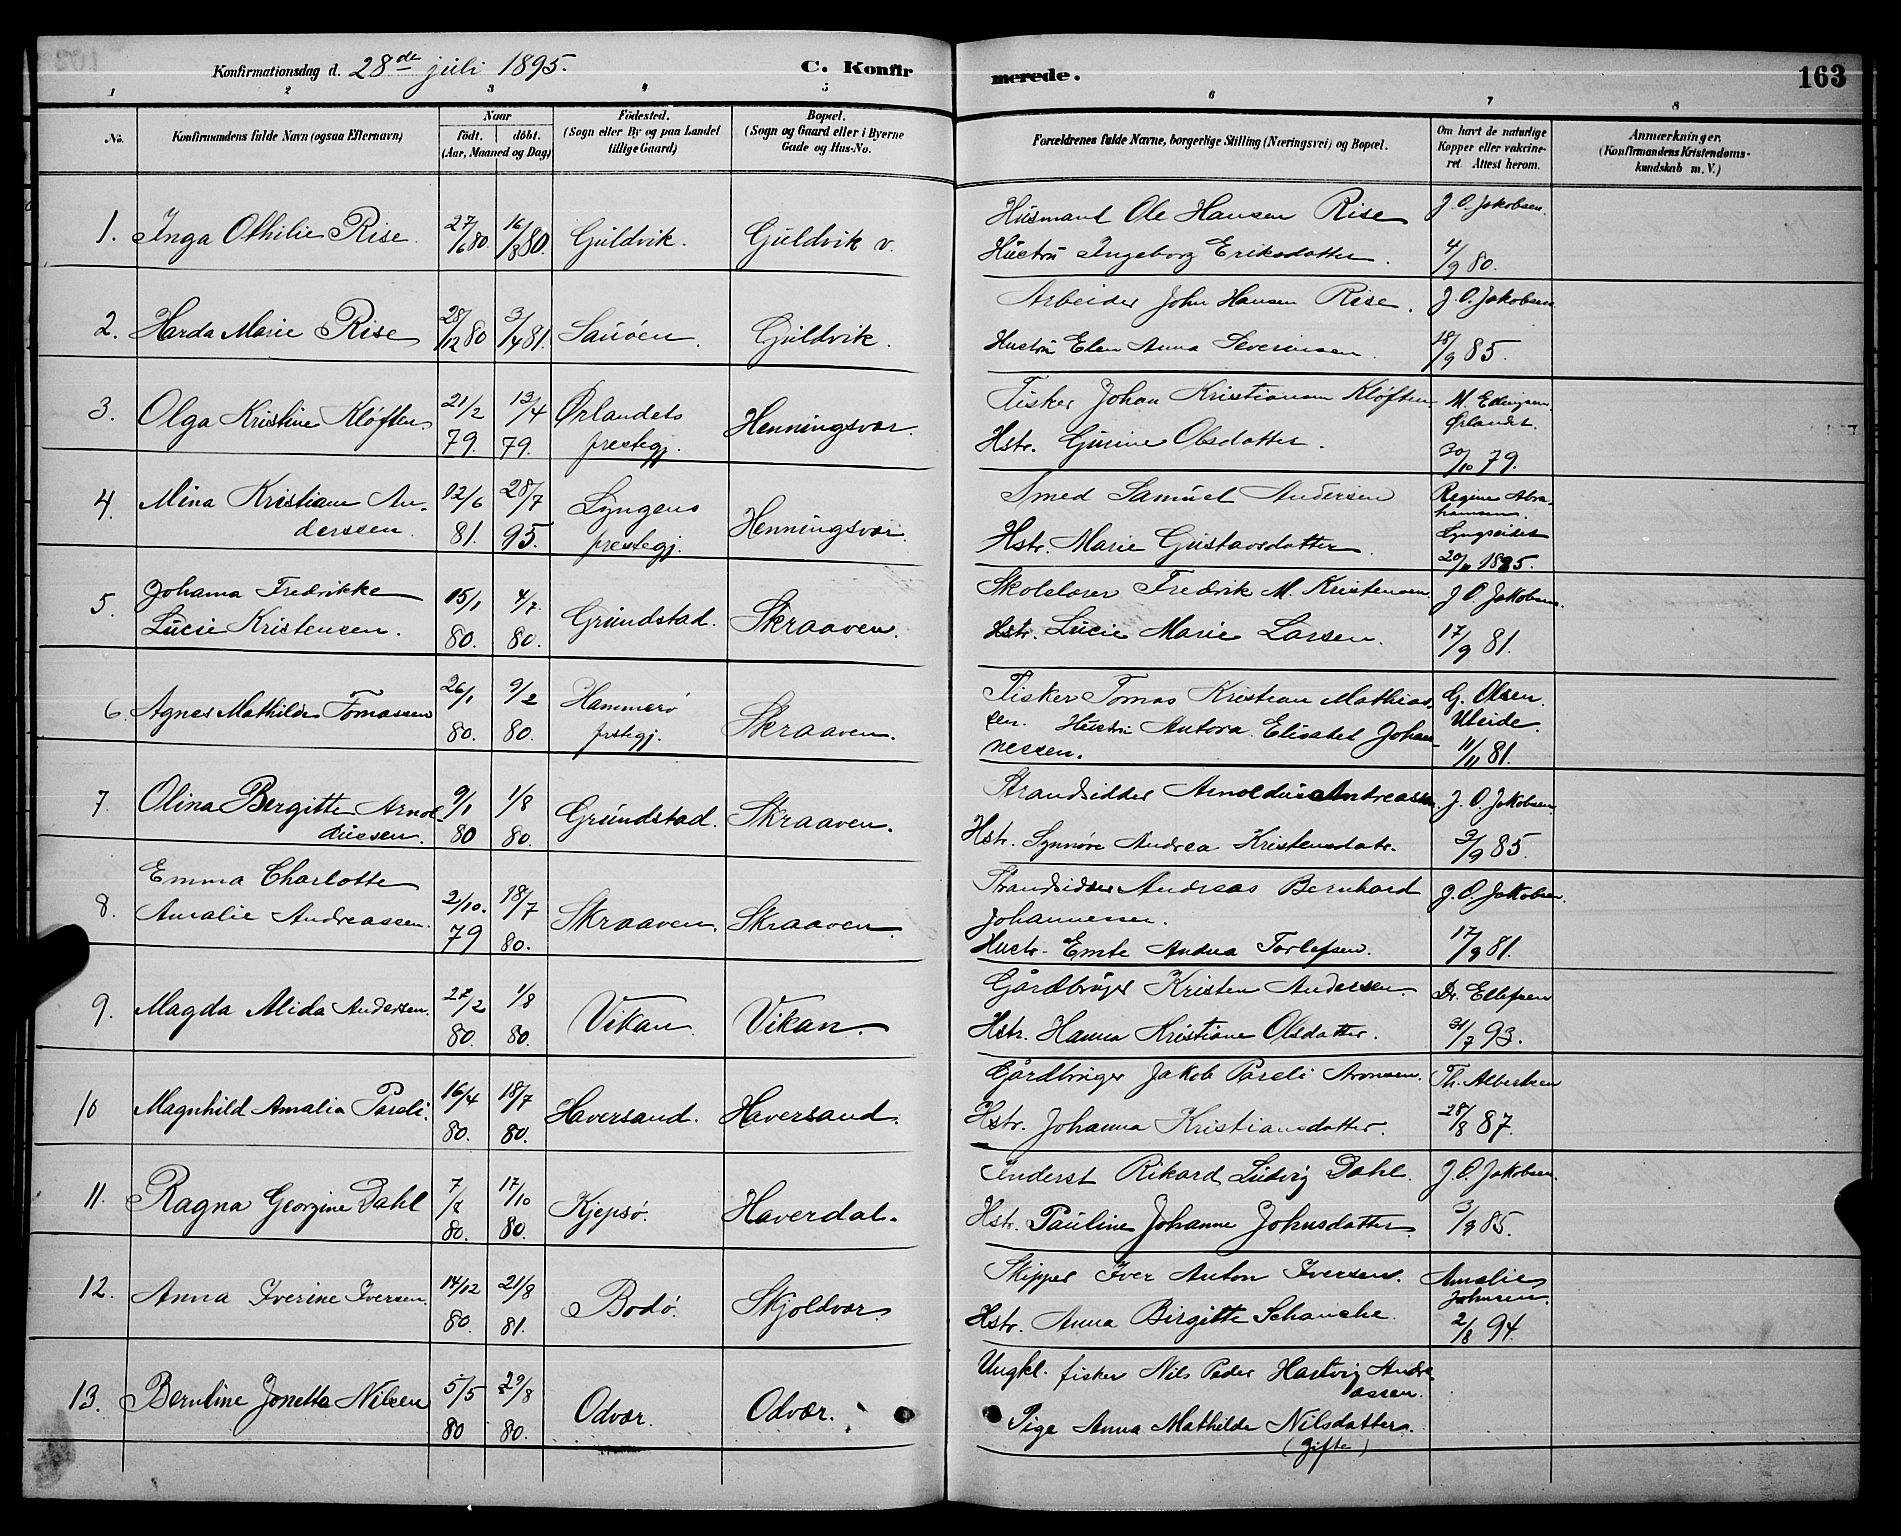 Konfirmationsdag d. 28de juli 1895.
C. Konfir merede.
163
1 2 3 4 5 6 7 8
No.
Konfirmandens fulde Navn (ogsaa Efternavn)
Naar
födt. döbt.
(Aar, Maaned og Dag)
Födested.
(Sogn eller By og paa Landet
tillige Gaard)
Bopæl.
(Sogn og Gaard eller i Byerne
Gade og Hus-No.
Forældrenes fulde Navne, borgerlige Stilling (Næringsvei) og Bopæl.
Om havt de naturlige
Kopper eller vakcine-
ret Attest herom.
Anmærkninger.
(Konfirmandens Kristendoms-
kundskab m. V.)
1. Inga Othilie Rise 27/6 80. 16/8 80. Guldvik. Guldvik v. Husmand Ole Hansen Rise J. O. Jakobsen.
Hustru Ingeborg Eriksdatter. 4/9 80.
2. Harda Marie Rise 28/12 80 3/4 81. Sauöen. Guldvik. Arbeider John Hansen Rise. J. O. Jakobsen
Hustru Elen Anna Severinsen. 18/9 85.
3. Olga Kristine Klöften 21/2 13/4 Ørlandets Henningsvær. Fisker Johan Kristiansen Klöften M. Ellingsen.
79. 79. prestegj. Hstr. Gurine Olsdatter. Ørlandet.
20/10 79.
4. Mina Kristians An- 12/6 28/7 Lyngens Henningsvær. Smed Samuel Andersen Regine Abra-
hamsen.
derssen. 81. 95. prestegj. Hstr. Marie Gustavsdatter. Lyngseidet
20/11 1885.
5. Johanna Fredrikke 15/1 4/7 Grundstad. Skraaven. Skolelærer Fredrik M. Kristensen J. O. Jakobsen.
Lucie Kristensen. 80. 80. Hstr. Lucie Marie Larsen. 17/9 81.
6. Agnes Mathilde Tomassen 26/1 9/2 Hammerö Skraaven. Fisker Tomas Kristian Mathias- G. Olsen.
80. 80. prstegj. sen. Hustru Antora Elisabet Johan- Uteide
nessen. 11/11 81.
7. Olina Bergitte Arnol 9/1 1/8 Grundstad. Skraaven. Strandsidder Arnoldus Andreassen. J. O. Jakobsen
dussen. 80 80. Hstr. Synnöve Andrea Kristensdatr. 3/9 85.
8. Emma Charlotte 2/10. 18/7 Skraaven. Skraaven. Strandsidder Andreas Bernhard J. O. Jakobsen.
Amalie Andreassen. 79 80. Johannessen.
Hustr. Emte Andrea Torlefsen. 17/9 81.
9. Magda Alida Andersen. 27/2 1/8 Vikan. Vikan. Gårdbruger Kristen Andersen. Dr. Ellefsen
80. 80. Hstr. Hanna Kristiane Olsdatter. 31/7 93.
10 Magnhild Amalia Pareli. 16/4 18/7 Haversand. Haversand. Gårdbruger Jakob Pareli Aronsen. Th. Albertsen
80. 80. Hstr. Johanna Kristiansdatter. 28/8 87.
11. Ragna Georgine Dahl 7/8 17/10 Kjepsö. Haverdal. Inderst Rikard Ludvig Dahl. J. O. Jakobsen.
80. 80. Hstr. Pauline Johanne Johnsdatter. 3/9 85.
12. Anna Iverine Iversen. 14/12 21/8 Bodö. Skjoldvær. Skipper Iver Anton Iversen. Amalie
Johnsen.
80. 81. Hstr. Anna Birgitte Schanche. 2/8 94.
13. Berntine Jonetta Nilsen 5/5 29/8 Odvær. Odvær. Ungkl. fisker Nils Peder Hartvig Andre-
assen.
80 80. Pige Anna Mathilde Nilsdatter.
(gifte)